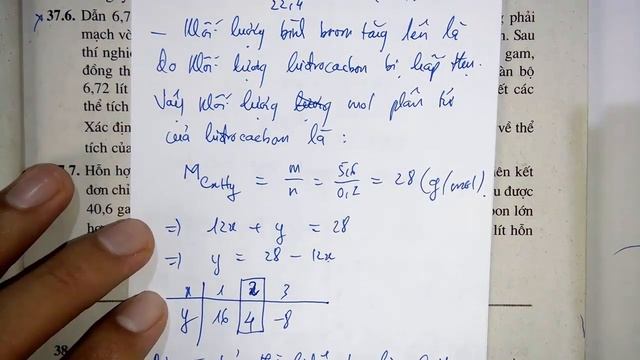 22,4
37.6. Dẫn 6,7
mạch vò
thí nghiệ
đồng th
6,72 lít
thể tích
Xác địn
tích của
phải
n. Sau
gam,
àn bộ
ết các
về thể
– Khối lượng bình brom tăng lên là
do khối lượng hiđrocacbon bị hấp thụ.
Vậy khối lượng mol phân tử
của hiđrocacbon là :
M CxHy = m/n = 5,6/0,2 = 28 (g/mol).
=> 12x + y = 28
=> y = 28 - 12x
x 1 2 3
y 16 4 -8
7.7. Hỗn hợ
đơn chỉ
40,6 ga
iên kết
u được
bon lớn
lít hỗn
38